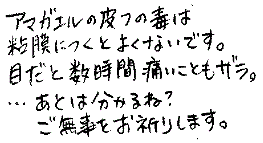 アマガエルの皮フの毒は
粘膜につくとよくないです。
目だと数時間痛いこともザラ。
…あとは分かるね?
ご無事をお祈りします。